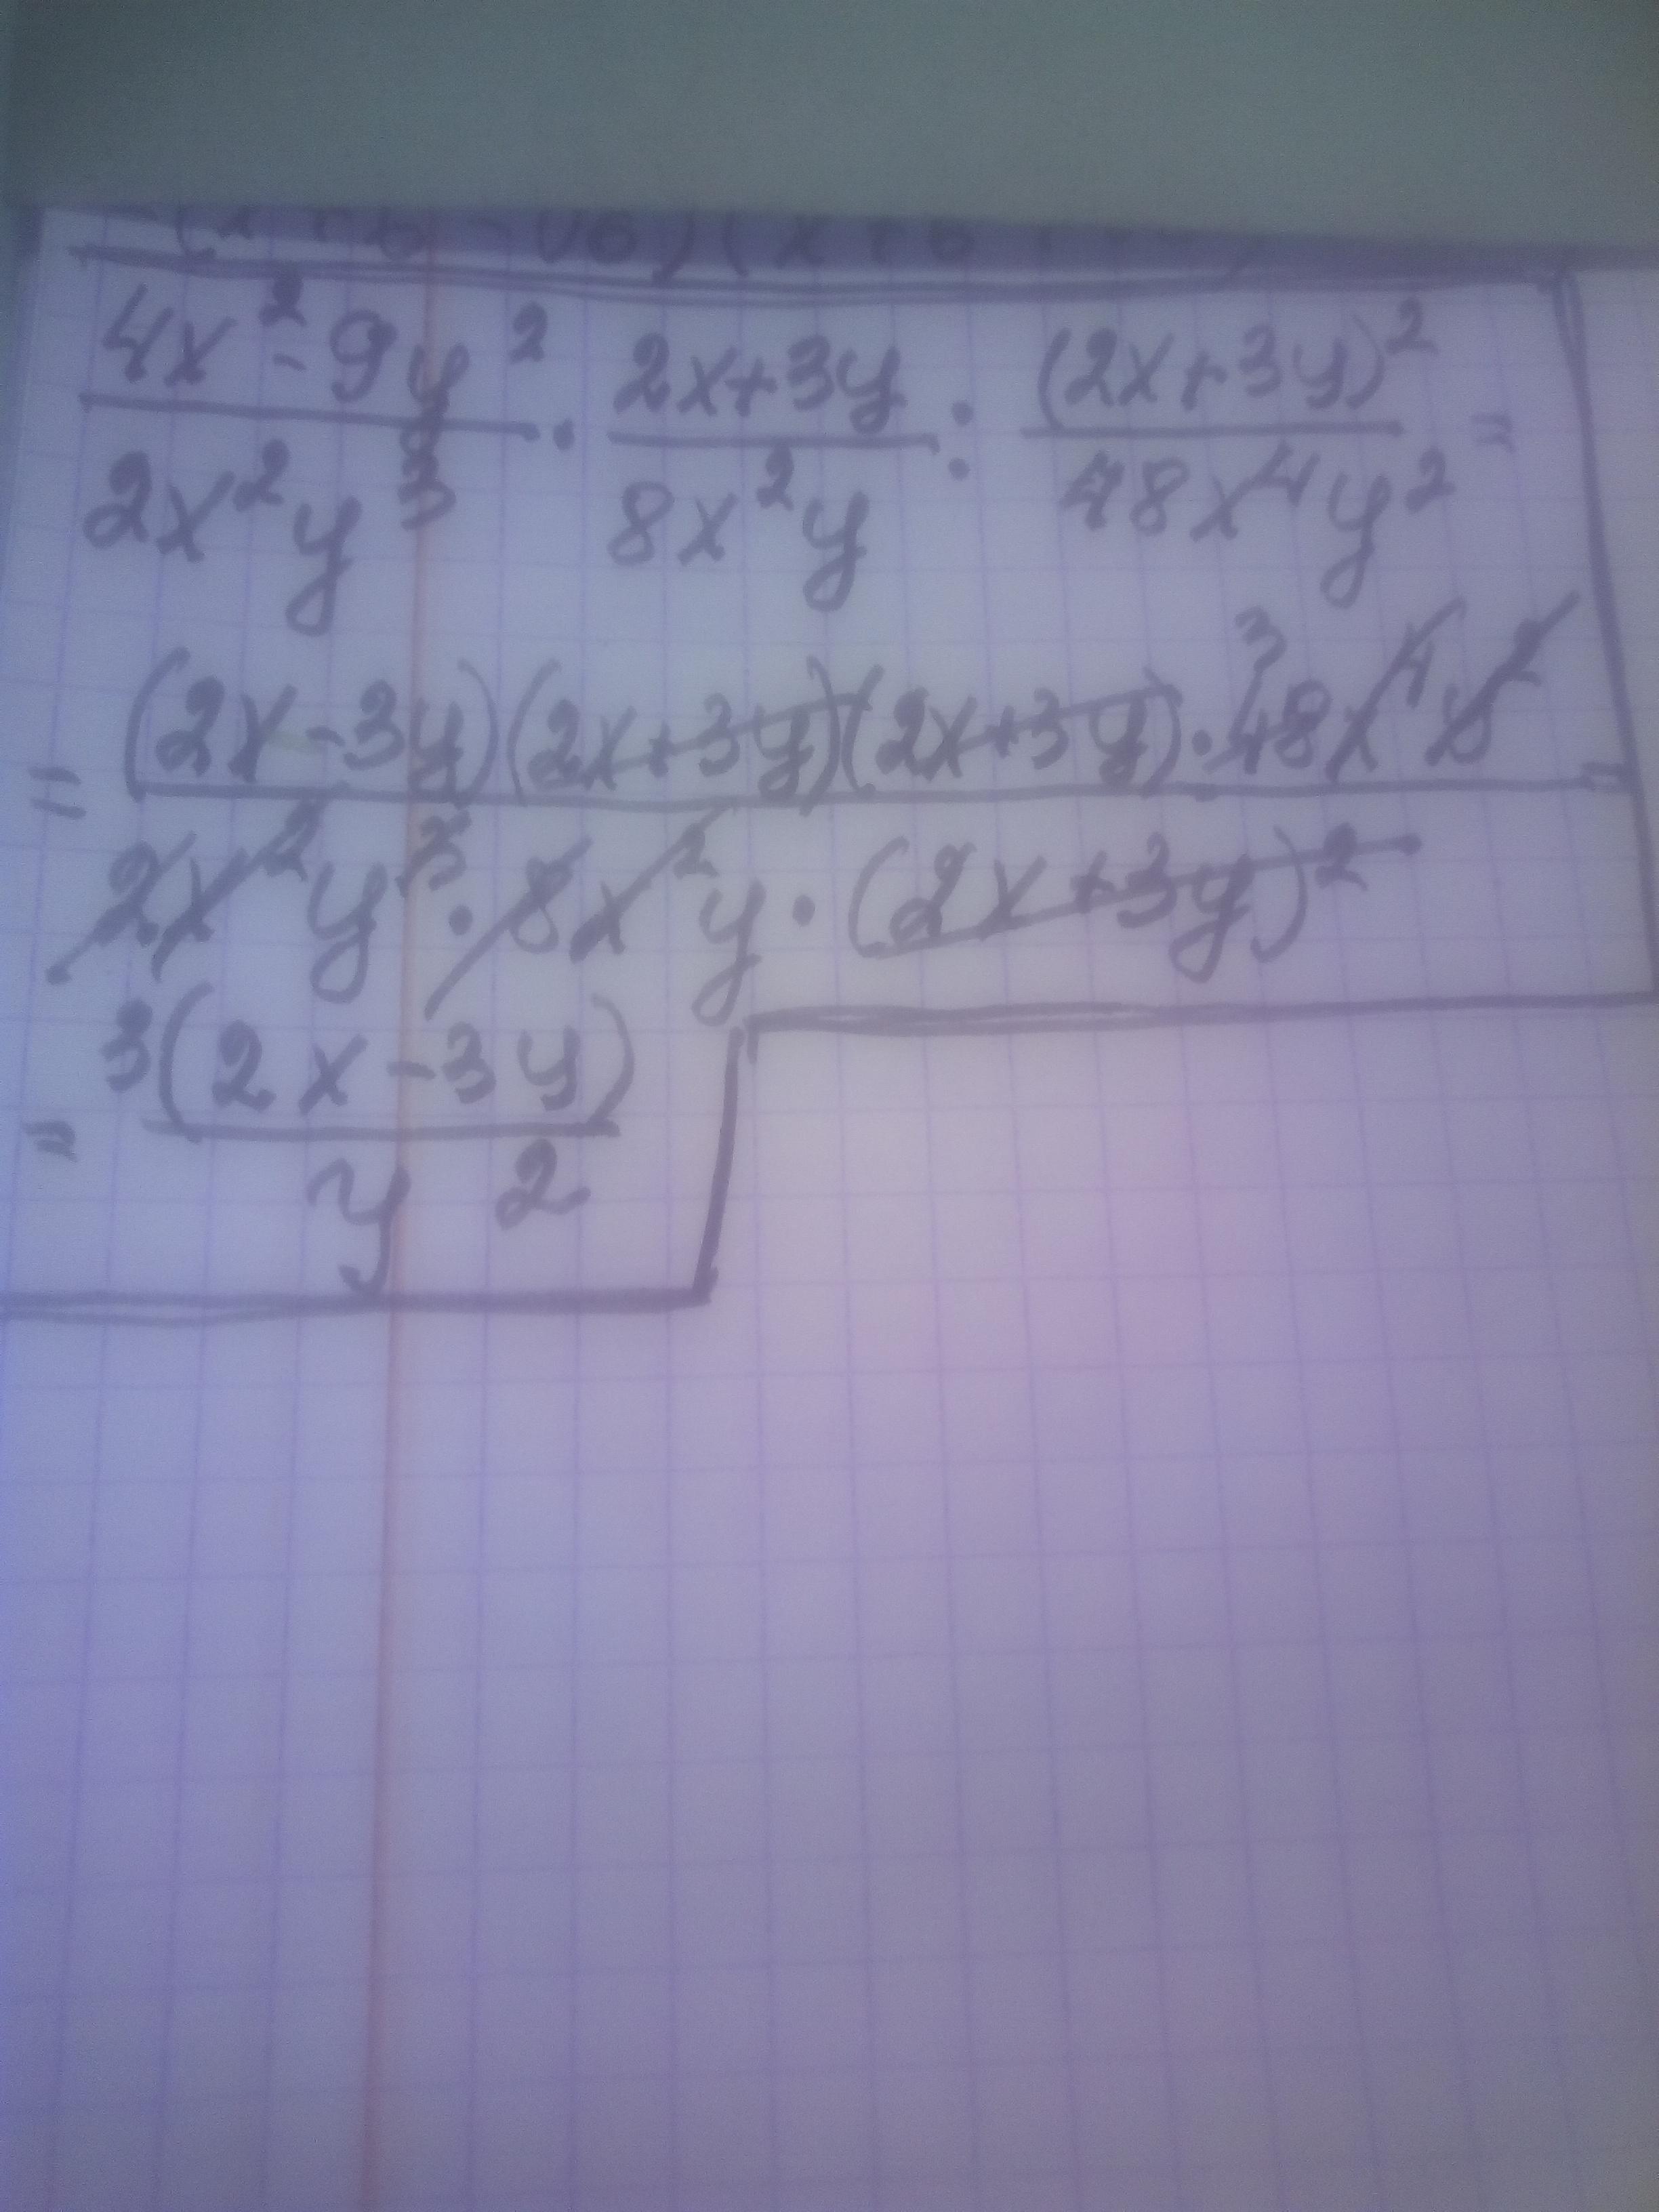 (4x²-9y²)/(2x²y³) · (2x+3y)/(8x²y) : (2x+3y)²/(48x⁴y²) =
= ((2x-3y)(2x+3y)(2x+3y)·³48x⁴y²)/(2x²y³·8x²y·(2x+3y)²) =
= 3(2x-3y)/y²